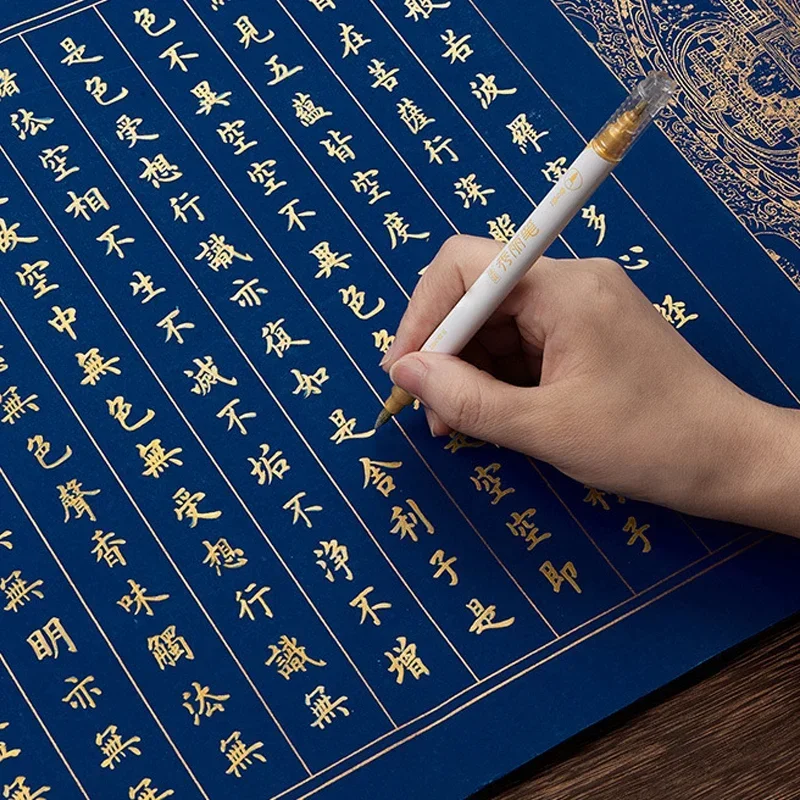 般若波羅蜜多心經
在菩薩行深般
見五蘊皆空度
利子
色不異空空不異色色
空空即
是色受想行識亦復如是舍利子是
諸法空相不生不滅不垢不淨不增
故空中無色無受想行識無
無色聲香味觸法無
無明亦無
秀丽笔